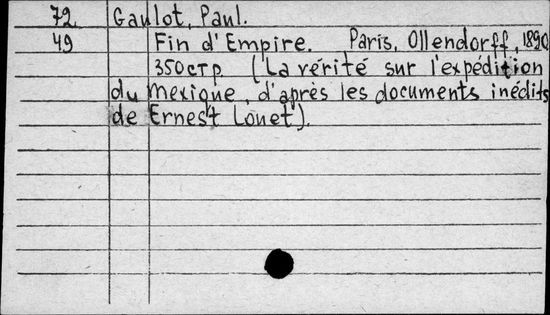 72 Gaulot, Paul.
49 Fin d'Empire. Paris, Ollendorff, 1890
350 стр (La vérité sur l'expédition
du Mexique, d'après les documents inédits
de Ernest Louet).